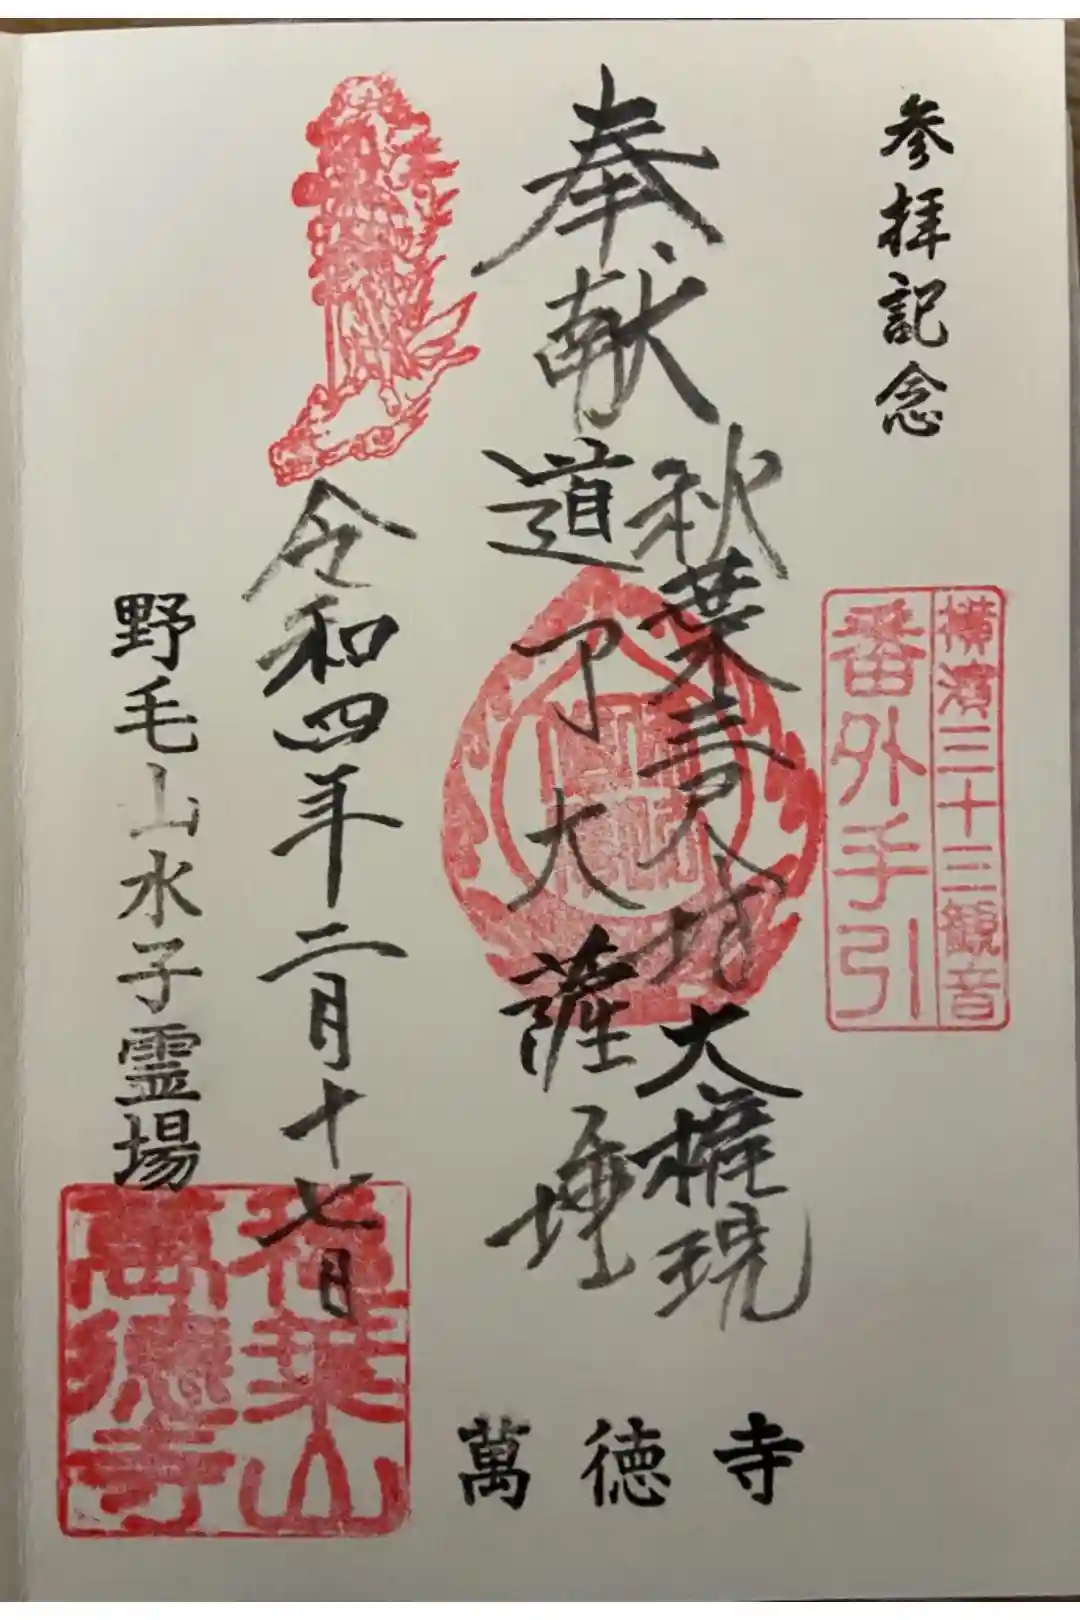 参拝記念
横濱三十三観音
番外手引
奉献
秋葉三尺坊大権現
道了大薩埵
令和四年二月十七日
野毛山水子霊場
萬徳寺
葉山
萬徳寺